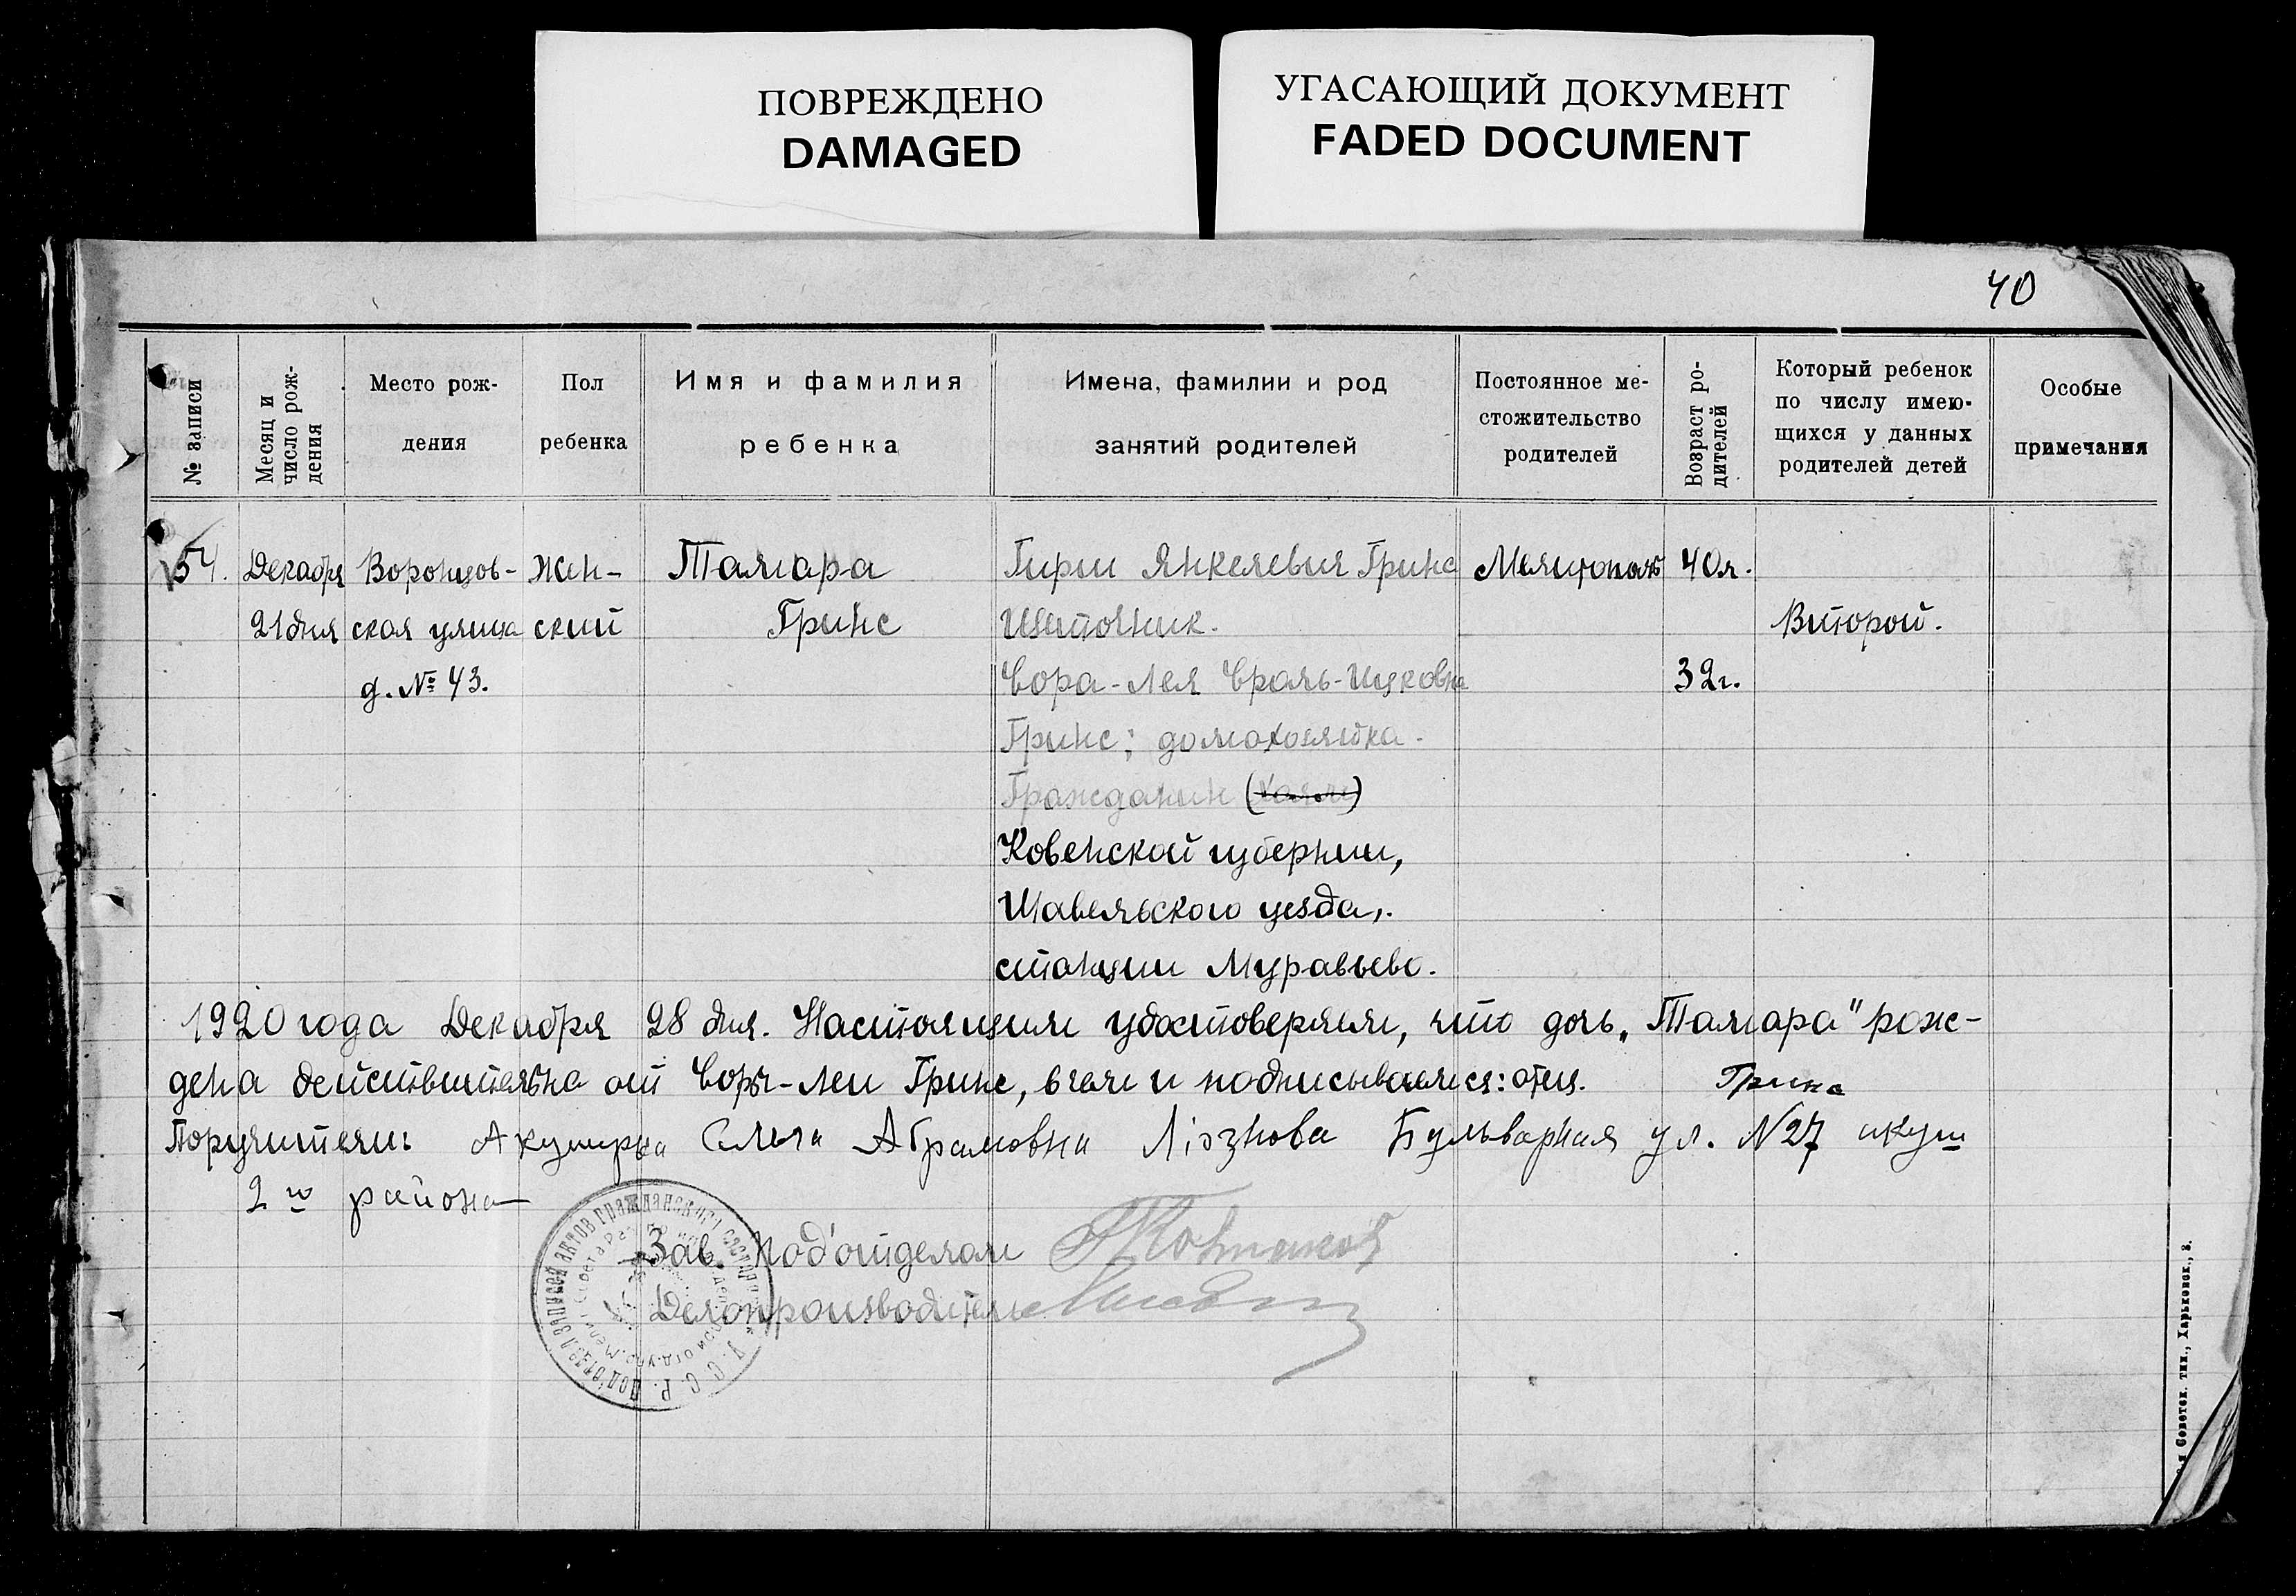 ПОВРЕЖДЕНО
DAMAGED
УГАСАЮЩИЙ ДОКУМЕНТ
FADED DOCUMENT
40
№ записи
Месяц и
число рож-
дения
Место рож-
дения
Пол
ребенка
Имя и фамилия
ребенка
Имена, фамилии и род
занятий родителей
Постоянное ме-
стожительство
родителей
Возраст ро-
дителей
Который ребенок
по числу имею-
щихся у данных
родителей детей
Особые
примечания
54.
Декабря
21 дня
Воронцов-
ская улица
д. № 43.
Жен-
ский
Тамара
Гринс
Гирш Янкелевич Гринс
Шапочник.
Сора-Лея Сроль-Ицковна
Гринс; домохозяйка.
Гражданин
Ковенской губернии,
Шавельского уезда,
станции Муравьево.
Мелитополь
40 л.
32 г.
Второй.
1920 года Декабря 28 дня. Настоящим удостоверяем, что дочь „Тамара" рож-
дена действительно от Соры-Леи Гринс, в чем и подписываемся: отец. Гринс
Поручители: Акушерка Абрамовна Бульварная ул. N 27 акуш
2го района
Зав. Под'отделом
Делопроизводитель
Под'отдел записей актов гражданского
У. С. С. Р.
Советск. тип., Харьковск., 3.